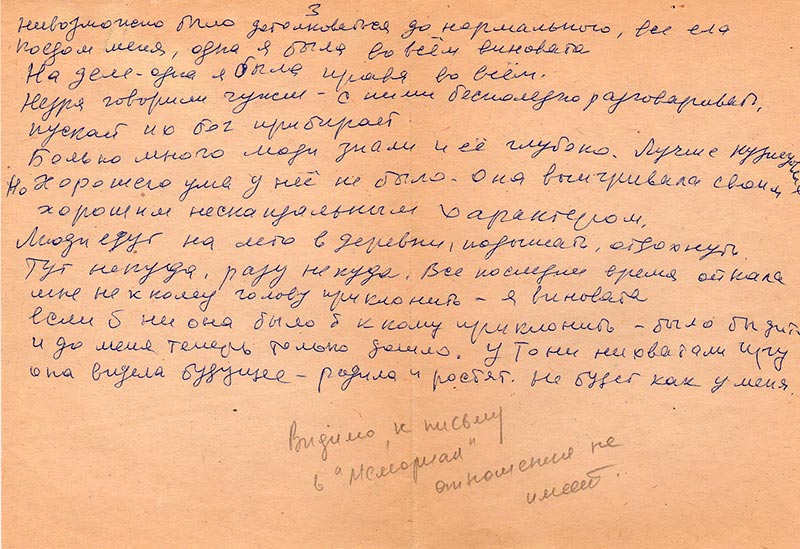 3
невозможно было дотолковаться до нормального, все ела
поедом меня, одна я была во всём виновата
На деле - одна я была права во всём.
Недря говорили чужие - с ними бесполезно разговаривать,
пускай их бог прибирает.
Больно много люди знали и её глубоко. Лучше
Но Хорошего ума у неё не было - она выигрывала своим
хорошим нескандальным характером.
Люди едут на лето в деревни, подышать, отдохнуть
Тут некуда, разу некуда. Все последнее время
мне не к кому голову приклонить - я виновата
если б ни она было б к кому приклонить - было бы
и до меня теперь только дошло. У Тони
она видела будущее - родила и ростят. Не будет как у меня
Видимо, к письму
в "Мемориал"
отношения не
имеет.